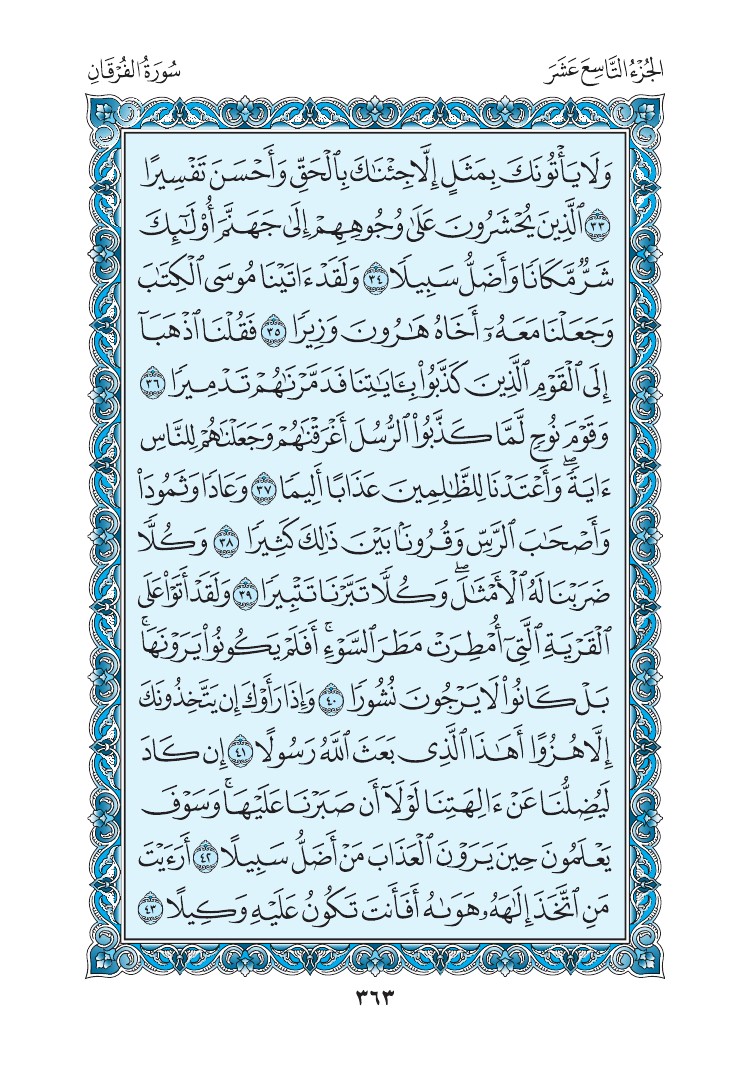 الجُزْءُ التَّاسِعَ عَشَرَ
سُورَةُ الفُرْقَانِ
وَلَا يَأْتُونَكَ بِمَثَلٍ إِلَّا جِئْنَٰكَ بِٱلْحَقِّ وَأَحْسَنَ تَفْسِيرًا
٣٣ ٱلَّذِينَ يُحْشَرُونَ عَلَىٰ وُجُوهِهِمْ إِلَىٰ جَهَنَّمَ أُوْلَٰٓئِكَ
شَرٌّ مَّكَانًا وَأَضَلُّ سَبِيلًا ٣٤ وَلَقَدْ ءَاتَيْنَا مُوسَى ٱلْكِتَٰبَ
وَجَعَلْنَا مَعَهُۥٓ أَخَاهُ هَٰرُونَ وَزِيرًا ٣٥ فَقُلْنَا ٱذْهَبَآ
إِلَى ٱلْقَوْمِ ٱلَّذِينَ كَذَّبُواْ بِـَٔايَٰتِنَا فَدَمَّرْنَٰهُمْ تَدْمِيرًا ٣٦
وَقَوْمَ نُوحٍ لَّمَّا كَذَّبُواْ ٱلرُّسُلَ أَغْرَقْنَٰهُمْ وَجَعَلْنَٰهُمْ لِلنَّاسِ
ءَايَةً ۖ وَأَعْتَدْنَا لِلظَّٰلِمِينَ عَذَابًا أَلِيمًا ٣٧ وَعَادًا وَثَمُودَا۟
وَأَصْحَٰبَ ٱلرَّسِّ وَقُرُونًۢا بَيْنَ ذَٰلِكَ كَثِيرًا ٣٨ وَكُلًّا
ضَرَبْنَا لَهُ ٱلْأَمْثَٰلَ ۖ وَكُلًّا تَبَّرْنَا تَتْبِيرًا ٣٩ وَلَقَدْ أَتَوْاْ عَلَى
ٱلْقَرْيَةِ ٱلَّتِىٓ أُمْطِرَتْ مَطَرَ ٱلسَّوْءِ ۚ أَفَلَمْ يَكُونُواْ يَرَوْنَهَا ۚ
بَلْ كَانُواْ لَا يَرْجُونَ نُشُورًا ٤٠ وَإِذَا رَأَوْكَ إِن يَتَّخِذُونَكَ
إِلَّا هُزُوًا أَهَٰذَا ٱلَّذِى بَعَثَ ٱللَّهُ رَسُولًا ٤١ إِن كَادَ
لَيُضِلُّنَا عَنْ ءَالِهَتِنَا لَوْلَآ أَن صَبَرْنَا عَلَيْهَا ۚ وَسَوْفَ
يَعْلَمُونَ حِينَ يَرَوْنَ ٱلْعَذَابَ مَنْ أَضَلُّ سَبِيلًا ٤٢ أَرَءَيْتَ
مَنِ ٱتَّخَذَ إِلَٰهَهُۥ هَوَىٰهُ أَفَأَنتَ تَكُونُ عَلَيْهِ وَكِيلًا ٤٣
٣٦٣